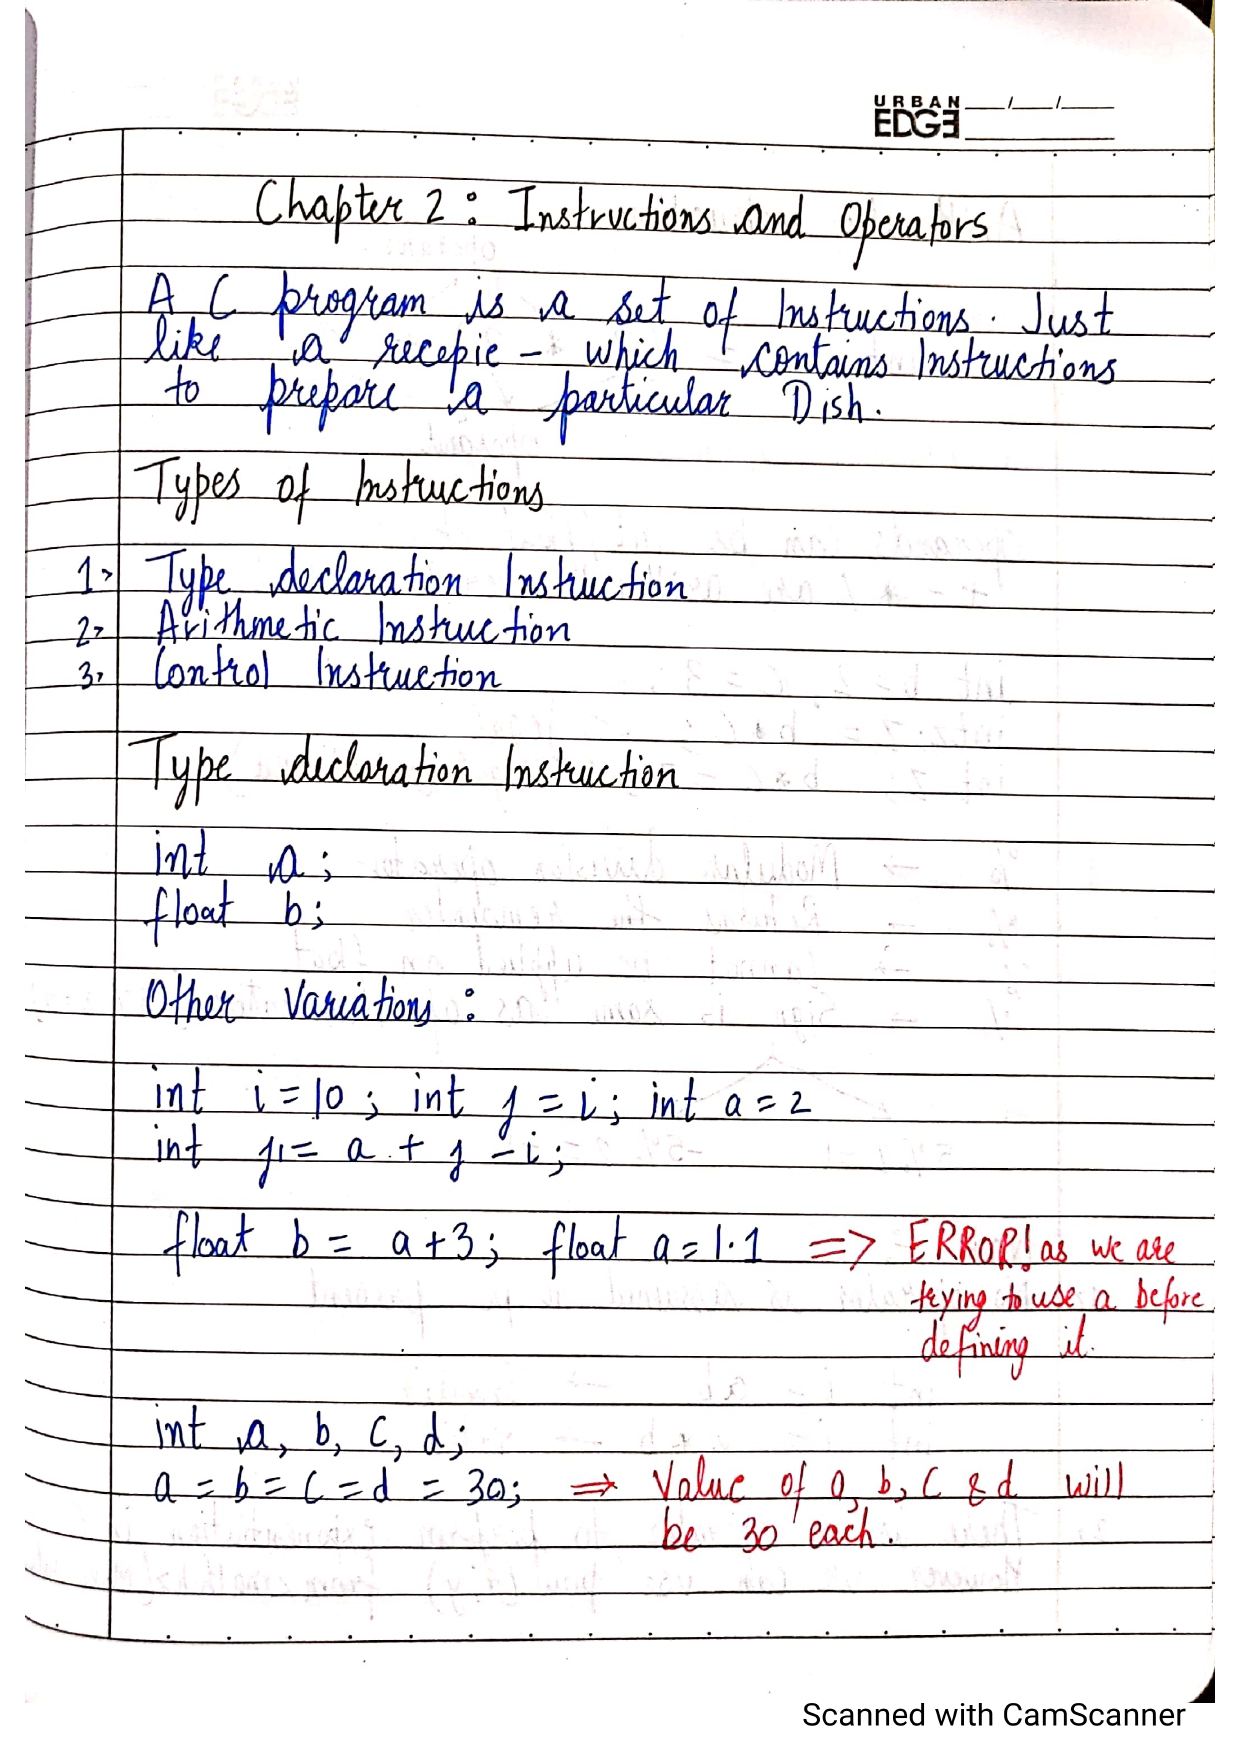 URBAN
EDGE __/__/__
Chapter 2: Instructions and Operators
A C program is a set of Instructions. Just
like a recepie - which contains Instructions
to prepare a particular Dish.
Types of Instructions
1> Type declaration Instruction
2> Arithmetic Instruction
3> Control Instruction
Type declaration Instruction
int a;
float b;
Other Variations:
int i = 10; int j = i; int a = 2
int j1 = a + j - i;
float b = a+3; float a = 1.1 => ERROR! as we are
trying to use a before
defining it.
int a, b, c, d;
a = b = c = d = 30; => Value of a, b, c & d will
be 30 each.
Scanned with CamScanner